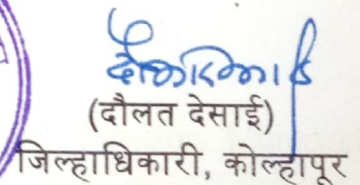 (दौलत देसाई)
जिल्हाधिकारी, कोल्हापूर